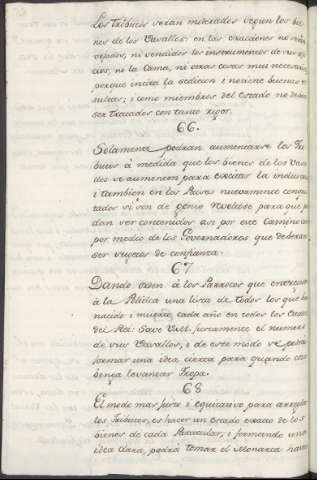 Los tributos seran moderados segun los bie-
nes de los Vasallos: en las execuciones no seran
ni vendidos los instrumentos de sus ofi-
cios, ni la Cama, ni otras cosas mui necesarias
porque incita la sedicion i
i como miembros del Estado no deben
ser tratados con tanto rigor.
66.
Solamente podran aumentarse los Tri-
butos à medida que los bienes de los Vasa-
llos se aumenten para excitar la industria
i tambien en los Paises nuevamente conquis-
tados si son de genio para que pue-
dan ser contenidos asi por este Camino como
por medio de los Governadores que deberan
ser sugetos de confianza.
67
Dando orden à los Parrocos que entreguen
à la Politica una lista de todos los que han
nacido i muerto cada año en todos los
del Rei: Save V.M. justamente el numero
de sus Vasallos, i de este modo se podra
formar una idea cierta para quando con-
benga levantar Tropa.
68
El modo mas justo i equitativo para arreglar
los Tributos, es hacer un estado exacto de los
bienes de cada Particular, i formando una
idea clara, podrá tomar el Monarca